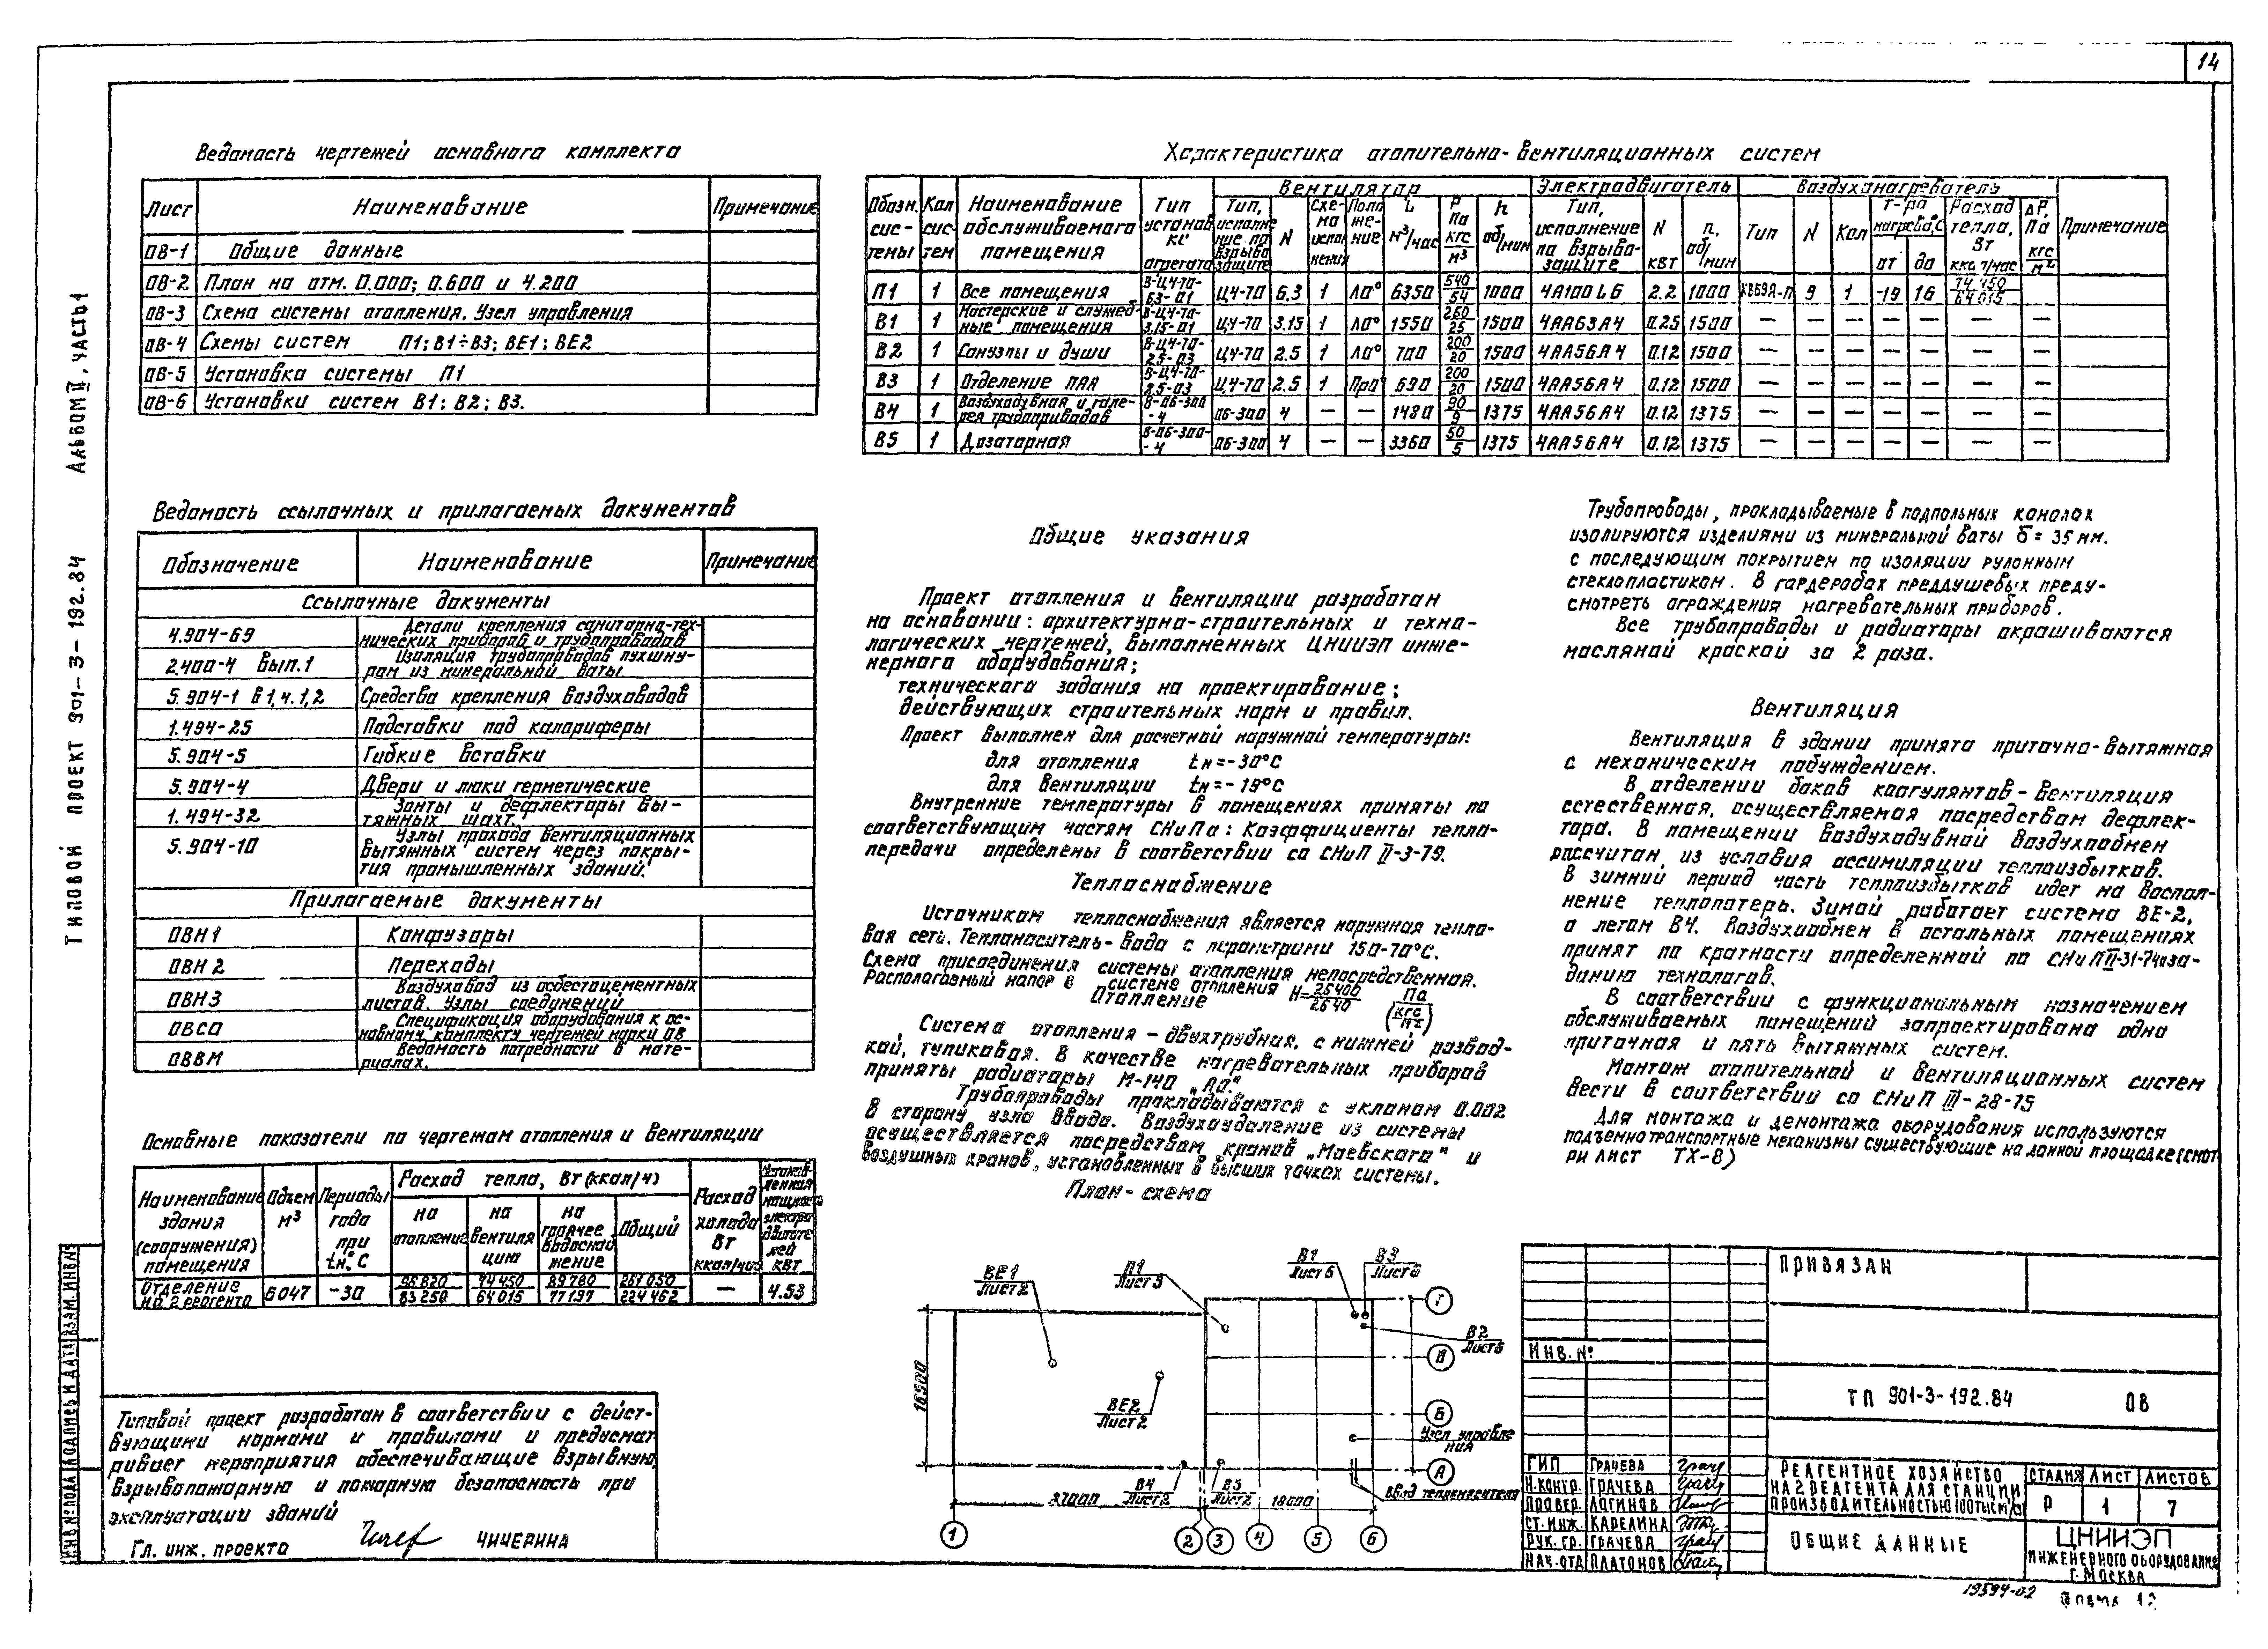 14
Ведомость чертежей основного комплекта
Лист Наименование Примечание
ОВ-1 Общие данные
ОВ-2 План на отм. 0.000; 0.600 и 4.200
ОВ-3 Схема системы отопления. Узел управления
ОВ-4 Схемы систем П1; В1÷В3; ВЕ1; ВЕ2
ОВ-5 Установка системы П1
ОВ-6 Установки систем В1; В2; В3.
Ведомость ссылочных и прилагаемых документов
Обозначение Наименование Примечание
Ссылочные документы
4.904-69 Детали крепления санитарно-тех-
нических приборов и трубопроводов
2.400-4 вып.1 Изоляция трубопроводов пухшну-
ром из минеральной ваты
5.904-1 в1,ч.1,2 Средства крепления воздуховодов
1.494-25 Подставки под калориферы
5.904-5 Гибкие вставки
5.904-4 Двери и люки герметические
1.494-32 Зонты и дефлекторы вы-
тяжных шахт.
5.904-10 Узлы прохода вентиляционных
вытяжных систем через покры-
тия промышленных зданий.
Прилагаемые документы
ОВН1 Конфузоры
ОВН2 Переходы
ОВН3 Воздуховод из асбестоцементных
листов. Узлы соединений
ОВСО Спецификация оборудования к ос-
новному комплекту чертежей марки ОВ
ОВВМ Ведомость потребности в мате-
риалах.
Основные показатели по чертежам отопления и вентиляции
Наименование здания (сооружения) помещения
Объем м³
Периоды года при tн,°С
Расход тепла, Вт (ккал/ч)
на отопление
на вентиляцию
на горячее водоснабжение
Общий
Расход холода Вт ккал/час
Установленная мощность электродвигателей кВт
Отделение на 2 реагента 6047 -30 96820/83250 74450/64015 89780/77197 261050/224462 — 4.53
Типовой проект разработан в соответствии с дейст-
вующими нормами и правилами и предусмат
ривает мероприятия обеспечивающие взрывную,
взрывопожарную и пожарную безопасность при
эксплуатации зданий
Гл. инж. проекта ЧИЧЕРИНА
Характеристика отопительно-вентиляционных систем
Обозн. сис-темы
Кол сис-тем
Наименование обслуживаемого помещения
Тип установки агрегата
Вентилятор
Тип, исполнение по взрывозащите
N
Схе-ма испол нения
Поло же-ние
L м³/час
Р Па кгс/м²
n об/мин
Электродвигатель
Тип, исполнение по взрывозащите
N кВт
n, об/мин
Воздухонагреватель
Тип
N
Кол
т-ра нагрева,°С
от
до
Расход тепла, Вт ккал/час
ΔР, Па кгс/м²
Примечание
П1 1 Все помещения В-Ц4-70-6.3-01 Ц4-70 6.3 1 Л0° 6350 540/54 1000 4А100L6 2.2 1000 КВБ9А-П 9 1 -19 16 74 450/64 015
В1 1 Мастерские и служеб-ные помещения В-Ц4-70-3.15-01 Ц4-70 3.15 1 Л0° 1550 260/25 1500 4АА63А4 0.25 1500 — — — — — — —
В2 1 Санузлы и души В-Ц4-70-2.5-03 Ц4-70 2.5 1 Л0° 700 200/20 1500 4АА56А4 0.12 1500 — — — — — — —
В3 1 Отделение ПАА В-Ц4-70-2.5-03 Ц4-70 2.5 1 Пр0° 690 200/20 1500 4АА56А4 0.12 1500 — — — — — — —
В4 1 Воздуходувная и гале-рея трубопроводов В-06-300-4 06-300 4 — — 1480 90/9 1375 4АА56А4 0.12 1375 — — — — — — —
В5 1 Дозаторная В-06-300-4 06-300 4 — — 3360 50/5 1375 4АА56А4 0.12 1375 — — — — — — —
Общие указания
Проект отопления и вентиляции разработан
на основании: архитектурно-строительных и техно-
логических чертежей, выполненных ЦНИИЭП инже-
нерного оборудования;
технического задания на проектирование;
действующих строительных норм и правил.
Проект выполнен для расчетной наружной температуры:
для отопления tн=-30°С
для вентиляции tн=-19°С
Внутренние температуры в помещениях приняты по
соответствующим частям СНиПа: Коэффициенты тепло-
передачи определены в соответствии со СНиП II-3-79.
Теплоснабжение
Источником теплоснабжения является наружная тепло-
вая сеть. Теплоноситель-вода с параметрами 150-70°С.
Схема присоединения системы отопления непосредственная.
Располагаемый напор в системе отопления Н=25400/2540 (Па/кгс/м²)
Отопление
Система отопления - двухтрубная, с нижней развод-
кой, тупиковая. В качестве нагревательных приборов
приняты радиаторы М-140 „АО."
Трубопроводы прокладываются с уклоном 0.002
в сторону узла ввода. Воздухоудаление из системы
осуществляется посредством кранов „Маевского" и
воздушных кранов, установленных в высших точках системы.
План-схема
Трубопроводы, прокладываемые в подпольных каналах
изолируются изделиями из минеральной ваты б = 35 мм.
с последующим покрытием по изоляции рулонным
стеклопластиком. В гардеробах преддушевых преду-
смотреть ограждения нагревательных приборов.
Все трубопроводы и радиаторы окрашиваются
масляной краской за 2 раза.
Вентиляция
Вентиляция в здании принята приточно-вытяжная
с механическим побуждением.
В отделении баков коагулянтов - вентиляция
естественная, осуществляемая посредством дефлек-
тора. В помещении воздуходувной воздухообмен
рассчитан, из условия ассимиляции теплоизбытков.
В зимний период часть теплоизбытков идет на воспол-
нение теплопотерь. Зимой работает система ВЕ-2,
а летом В4. Воздухообмен в остальных помещениях
принят по кратности определенной по СНиП II-31-74 и за-
данию технологов.
В соответствии с функциональным назначением
обслуживаемых помещений запроектирована одна
приточная и пять вытяжных систем.
Монтаж отопительной и вентиляционных систем
вести в соответствии со СНиП III-28-75
Для монтажа и демонтажа оборудования используются
подъемно транспортные механизмы существующие на данной площадке (смот
ри лист ТХ-8)
ВЕ1 Лист2
П1 Лист5
В1 Лист6
В3 Лист6
В2 Лист6
ВЕ2 Лист2
Узел управле
ния
В4 Лист2
В5 Лист2
Ввод теплоносителя
16500
27000
18000
1 2 3 4 5 6
Г В Б А
ПРИВЯЗАН
ИНВ. №
ТП 901-3-192.84 ОВ
ГИП ГРАЧЕВА
Н.КОНТР. ГРАЧЕВА
ПРОВЕР. ЛОГИНОВ
СТ.ИНЖ. КАРЕЛИНА
РУК. ГР. ГРАЧЕВА
НАЧ.ОТД ПЛАТОНОВ
РЕАГЕНТНОЕ ХОЗЯЙСТВО
НА 2 РЕАГЕНТА ДЛЯ СТАНЦИИ
ПРОИЗВОДИТЕЛЬНОСТЬЮ 100 ТЫС М³/С
СТАДИЯ ЛИСТ ЛИСТОВ
Р 1 7
ОБЩИЕ ДАННЫЕ
ЦНИИЭП
ИНЖЕНЕРНОГО ОБОРУДОВАНИЯ
Г. МОСКВА
19594-02
Форма 12
ТИПОВОЙ ПРОЕКТ 901-3-192.84 АЛЬБОМ II, ЧАСТЬ 1
ИНВ № ПОДЛ ПОДПИСЬ И ДАТА ВЗАМ. ИНВ №